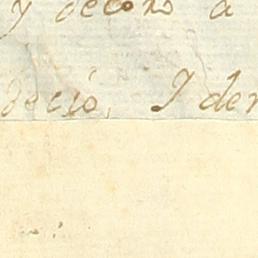 y decoro a
decio, I der